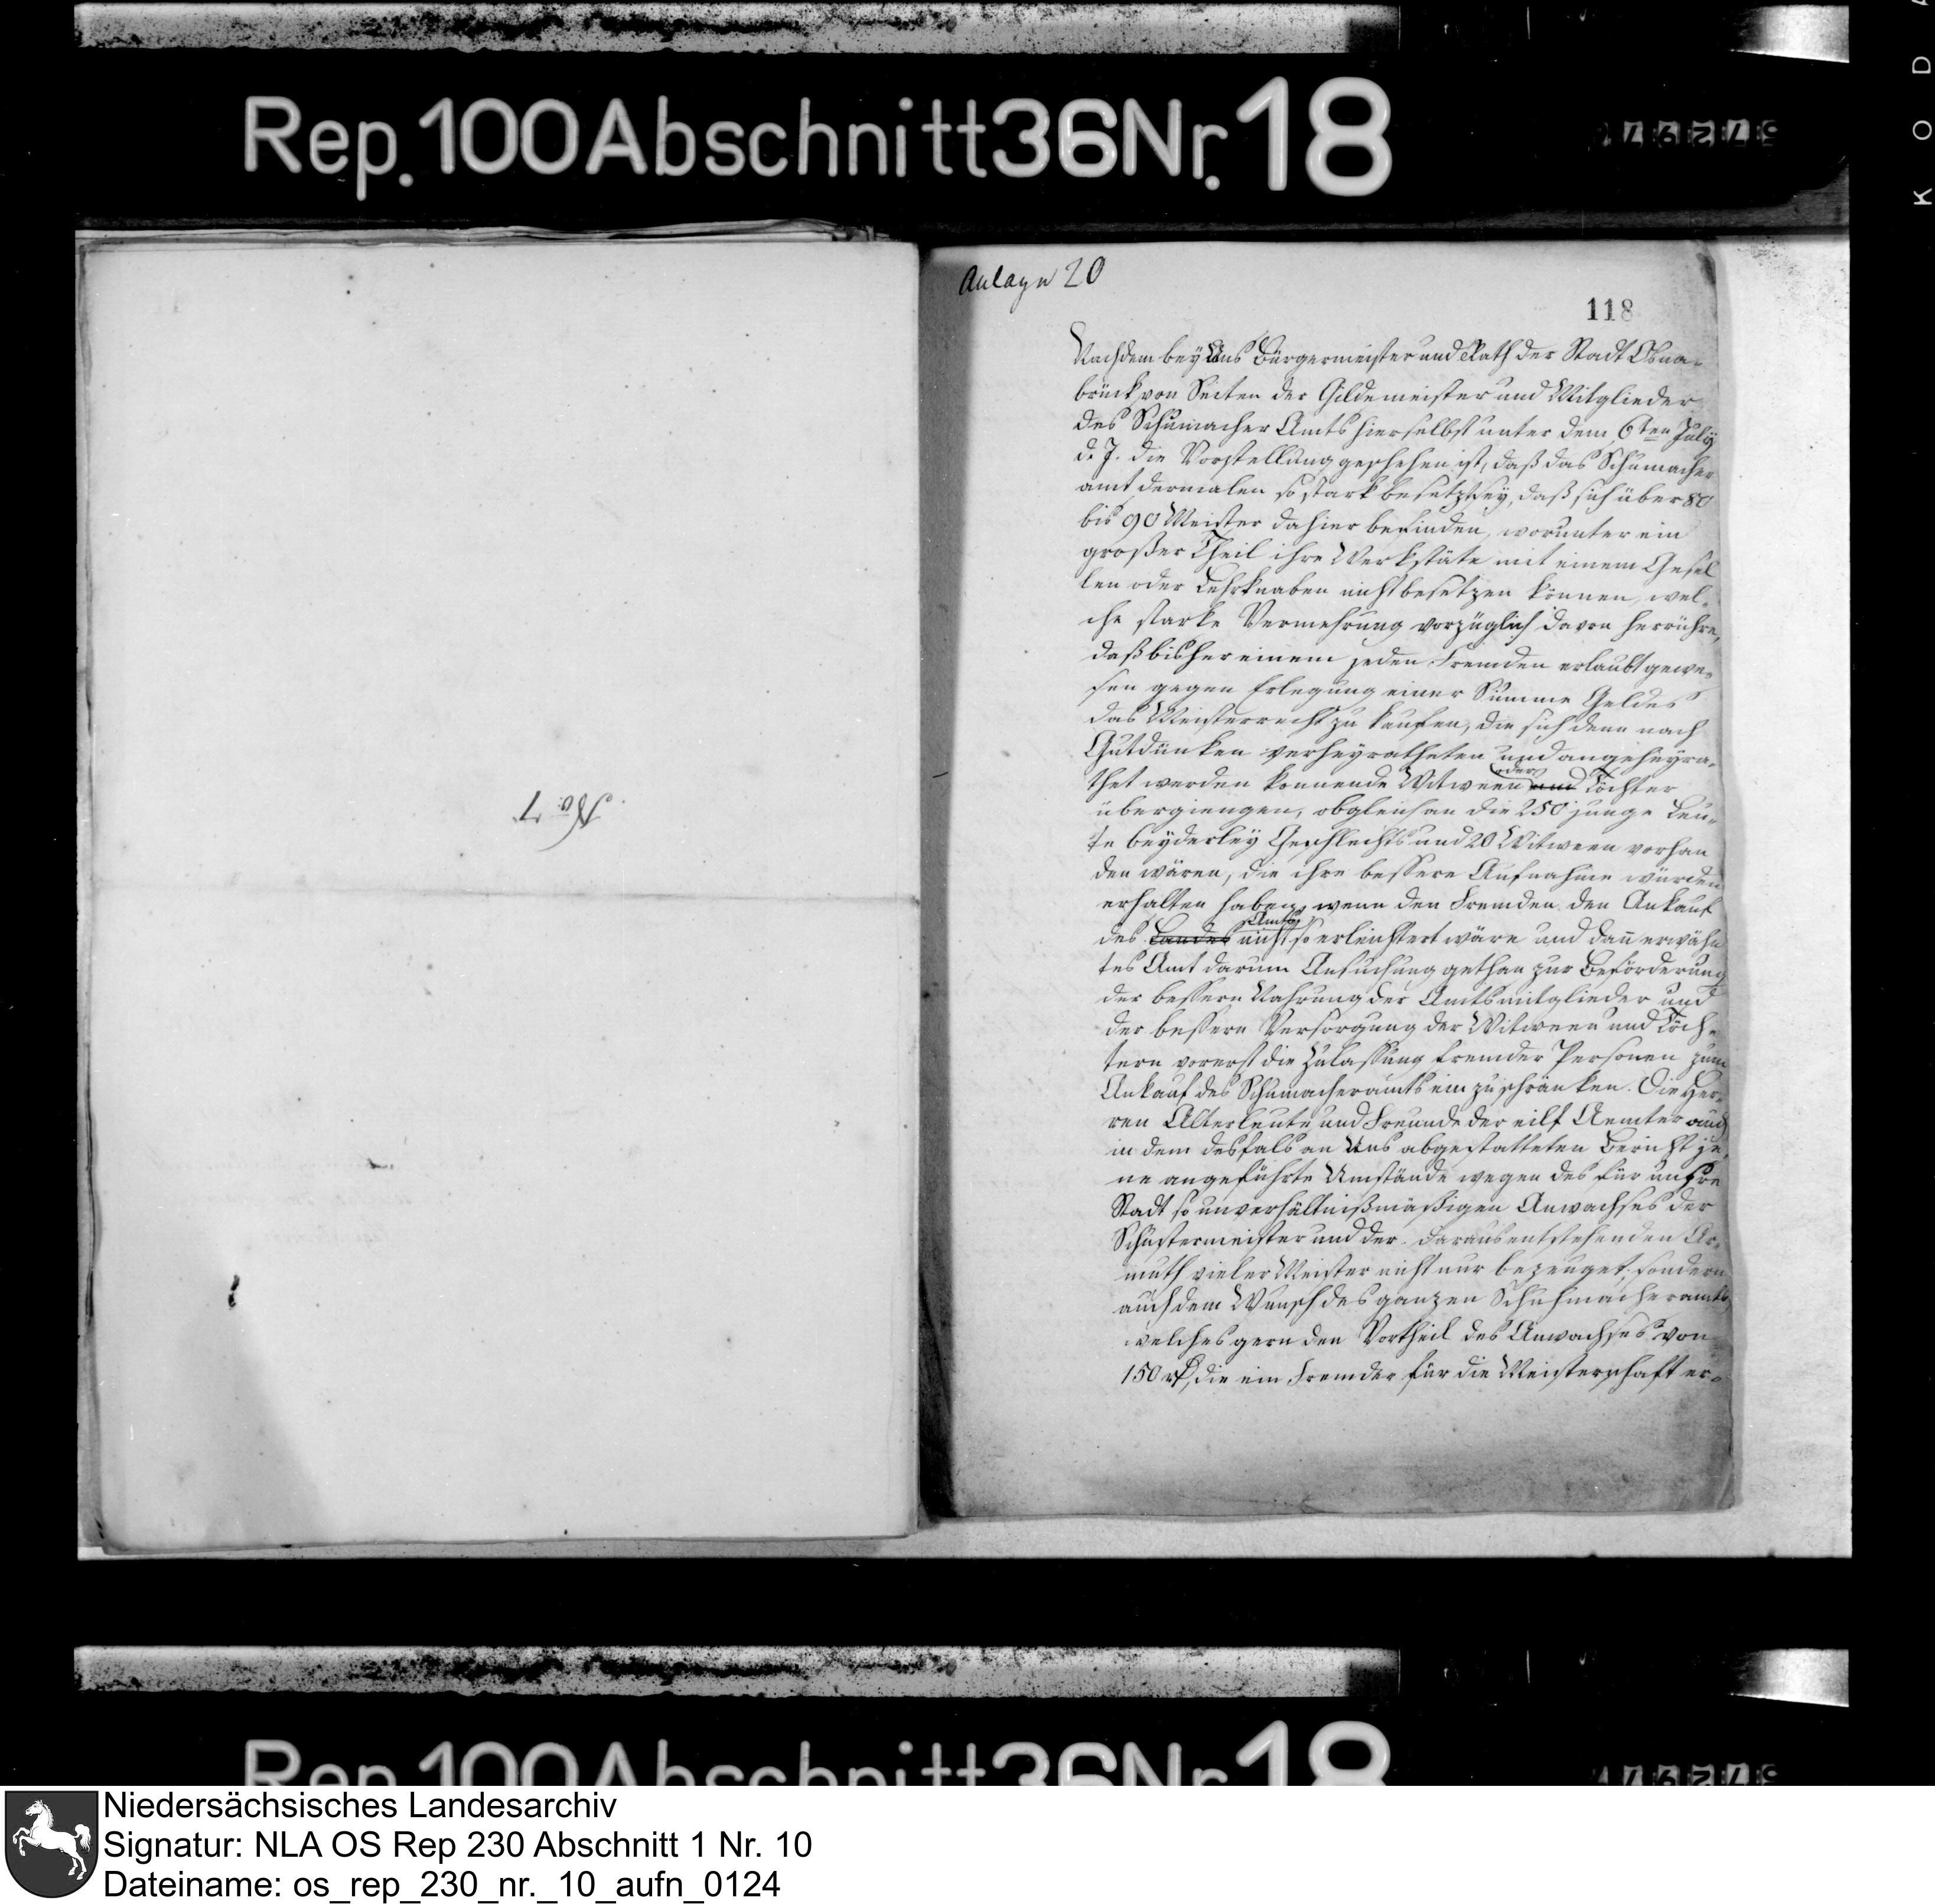 KODA
Rep. 100 Abschnitt 36 Nr. 18
No. 7.
Anlage 20
118
Nachdem bey Uns Bürgermeister und Rath der Stadt Osna-
brück von Seiten der Gildemeister und Mitglieder
des Schumacher Amts hierselbst unter dem 6ten July
d. J. die Vorstellung geschehen ist, daß das Schumacher
amt dermalen so stark besetzt sey, daß sich über 80
bis 90 Meister dahier befinden, worunter ein
großer Theil ihre Werkstäte mit einem Gesel
len oder Lehrknaben nicht besetzen können, wel-
che starke Vermehrung vorzüglich davon herrühre,
daß bisher einem jeden Fremden erlaubt gewe-
sen gegen Erlegung einer Summe Geldes
das Meisterrecht zu kaufen, die sich denn nach
Gutdünken verheyratheten und angeheyra-
thet werden konnende Witween und oder Töchter
übergiengen, obgleich an die 250 junge Leu-
te beyderley Geschlechts und 20 Witween vorhan
den wären, die ihre bessere Aufnahme würden
erhalten haben, wenn den Fremden den Ankauf
des Landes Amts nicht so erleichtert wäre und dan̄ erwähn
tes Amt darum Ansuchung gethan zur Beförderung
der bessern Nahrung der Amtsmitglieder und
der bessern Versorgung der Witween und Töch-
tern vorerst die Zulassung fremder Personen zum
Ankauf des Schumacheramts einzuschränken. Die Her-
ren Alterleute und Freunde der eilf Aemter auch
in dem desfals an Uns abgestatteten Bericht je-
ne angeführte Umstände wegen des für unsre
Stadt so unverhältnißmäßigen Anwachses der
Schustermeister und der daraus entstehenden Ar-
muth vieler Meister nicht nur bezeuget, sondern
auch dem Wunsch des ganzen Schuhmacheramts,
welches gern den Vortheil des Anwachses von
150 rt, die ein Fremder für die Meisterschaft er-
Rep. 100 Abschnitt 36 Nr. 18
Niedersächsisches Landesarchiv
Signatur: NLA OS Rep 230 Abschnitt 1 Nr. 10
Dateiname: os_rep_230_nr._10_aufn_0124